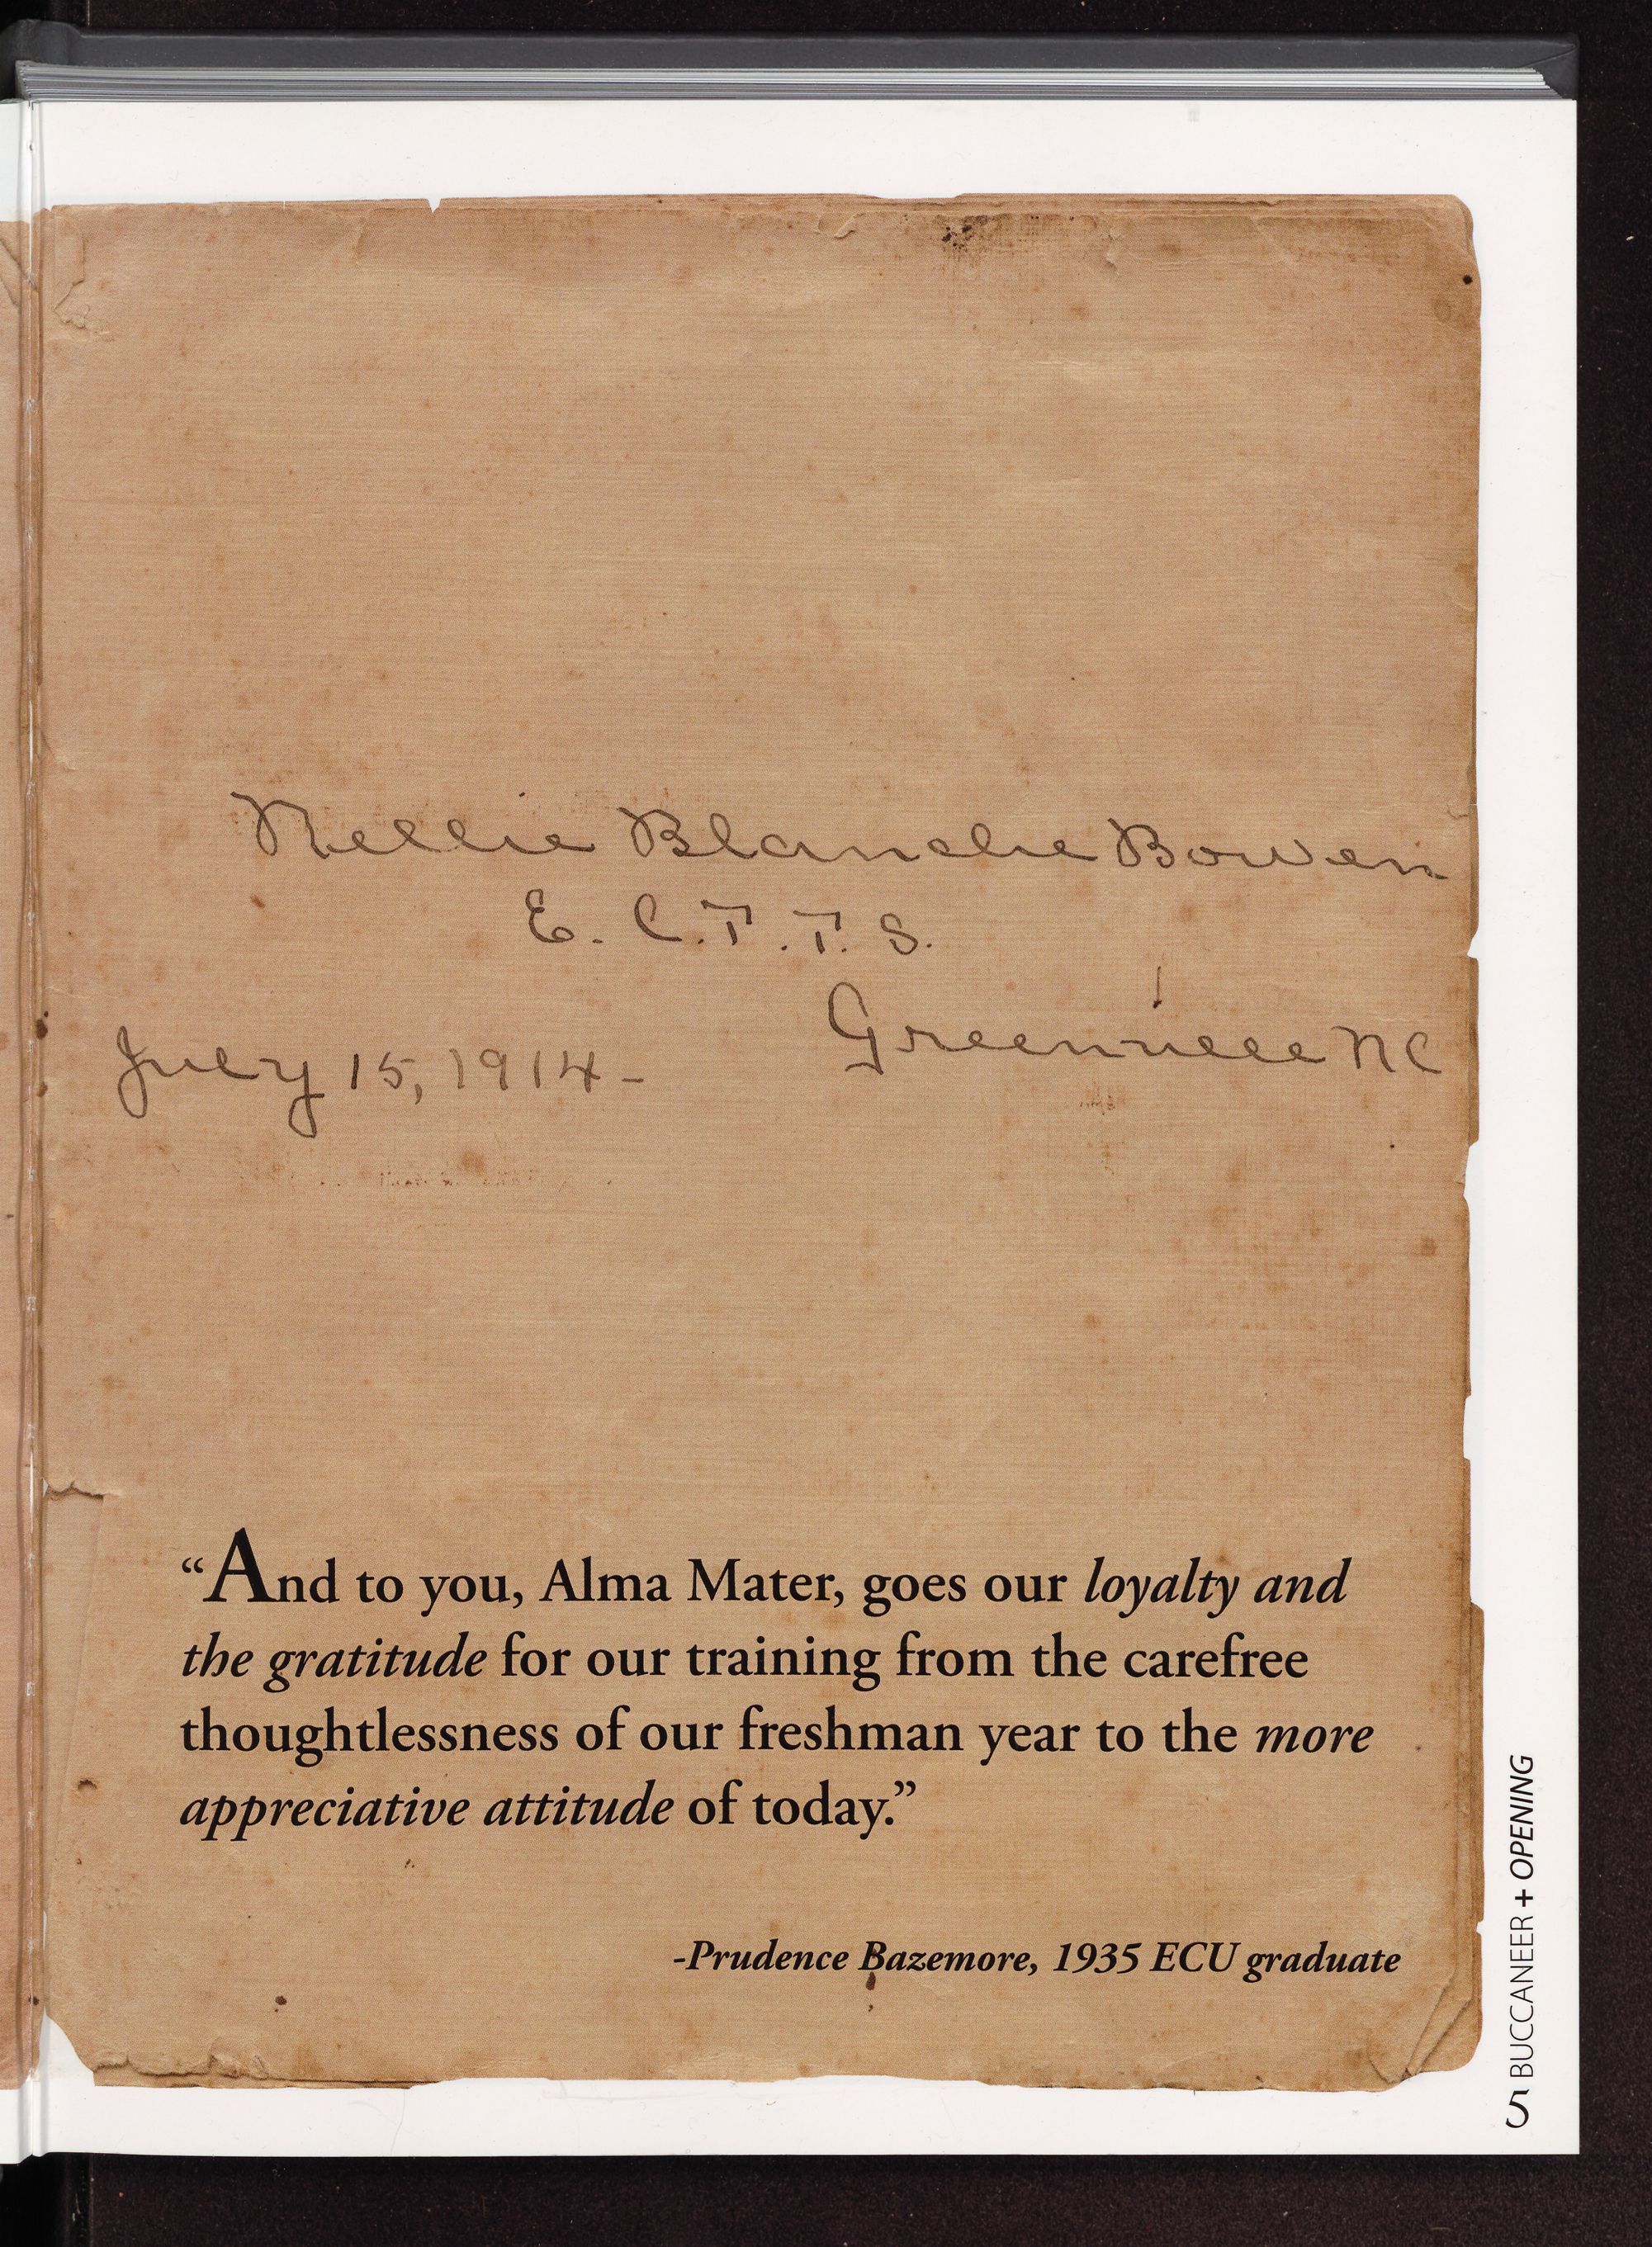 Nellie Blanche Bowen
E. C. T. T. S.
Greenville NC
July 15, 1914-
“And to you, Alma Mater, goes our loyalty and
the gratitude for our training from the carefree
thoughtlessness of our freshman year to the more
appreciative attitude of today.”
-Prudence Bazemore, 1935 ECU graduate
5 BUCCANEER + OPENING